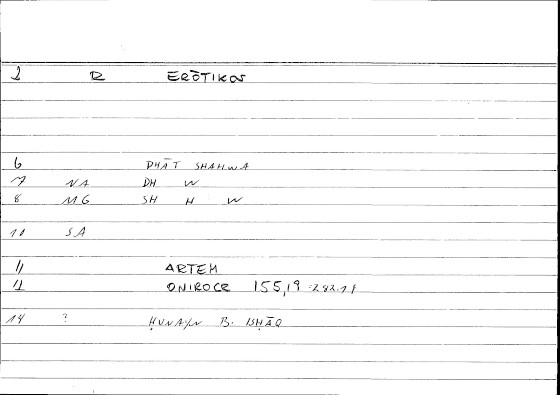 2 R ERŌTIKOS
6 DHĀT SHAHWA
7 NA DH W
8 MG SH H W
10 SA
11 ARTEM
12 ONIROCR 155,19 = 282.19
14 ? ḤUNAYN B. ISḤĀQ